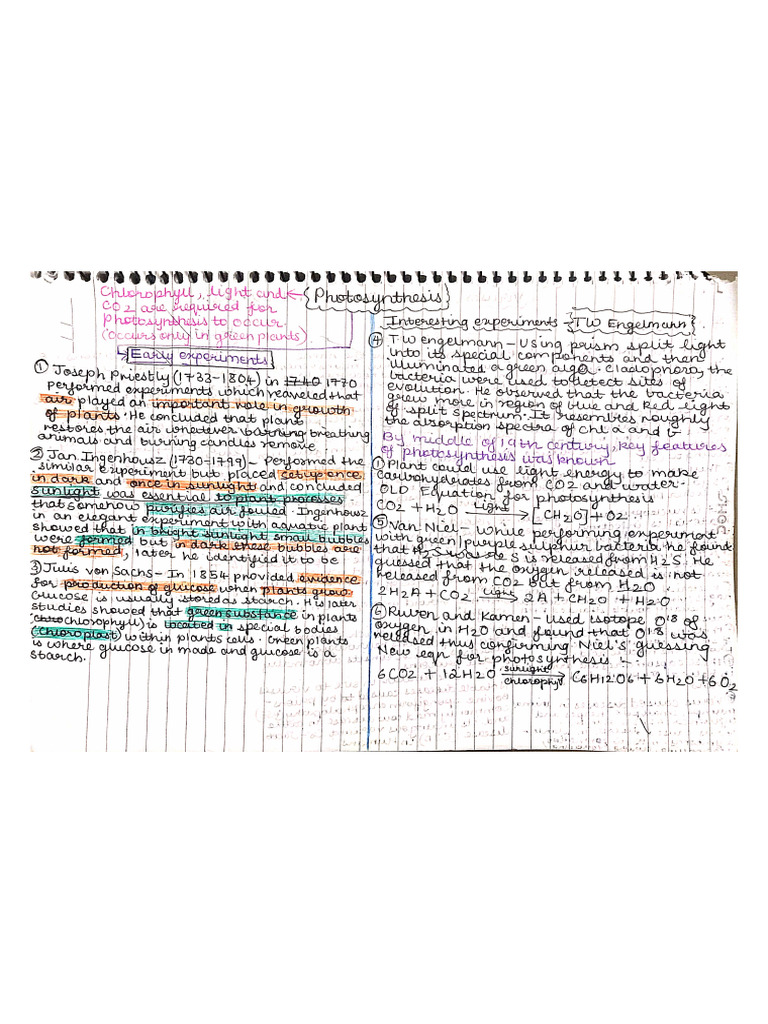 Photosynthesis
Chlorophyll, light and
CO2 are required for
Photosynthesis to occur.
(occurs only in green plants)
Early experiments
① Joseph Priestly (1733-1804) in 1740 1770
Performed experiments which reaveled that
air played an important role in growth
of plants. He concluded that plant
restores the air whatever burning breathing
animals and burning candles remove
② Jan Ingenhousz (1730-1799) - Performed the
similar experiment but placed setup once
in dark and once in sunlight and concluded
sunlight was essential to plant processes
that somehow purifies air fouled. Ingenhousz
in an elegant experiment with aquatic plant
showed that in bright sunlight small bubbles
were formed but in dark these bubbles are
not formed, later he identified it to be
3) Juius von Sachs - In 1854 provided evidence
for production of glucose when plants grow
Glucose is usually stored as starch. His later
studies showed that green substance in plants
chlorophyll) is located in special bodies
(chloroplast) within plants cells. Green plants
is where glucose in made and glucose is a
starch.
Interesting experiments - TW Engelmann
④ TW engelmann - Using prism split light
into its special components and then
illuminated a green alga. Cladophora, the
bacteria were used to detect sites of
evolution. He observed that the bacteria
grew more in region of blue and Red light
of split spectrum. It resembles roughly
the absorption spectra of chl a and b
By middle of 19th century, key features
of photosynthesis was known
① Plant could use light energy to make
carbohydrates from CO2 and water.
OLD Equation for photosynthesis
CO2 + H2O Light → [CH2O] + O2
⑤ Van Niel - While performing experiment
with green/purple sulphur bacteria he found
that S is released from H2S. He
guessed that the oxygen released is not
released from CO2 but from H2O.
2H2A + CO2 Light → 2A + CH2O + H2O
⑥ Ruven and Kamen - used isotope O18 of
oxygen in H2O and found that O18 was
released thus confirming Niel's guessing
New eqn for photosynthesis :-
6CO2 + 12H2O sunlight chlorophyl → C6H12O6 + 6H2O + 6O2